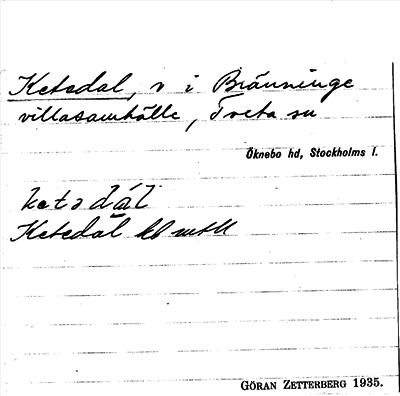 Ketsdal, v i Bränninge
villasamhälle, Tveta sn
Öknebo hd, Stockholms l.
ketsdál
Ketsdal
GÖRAN ZETTERBERG 1935.